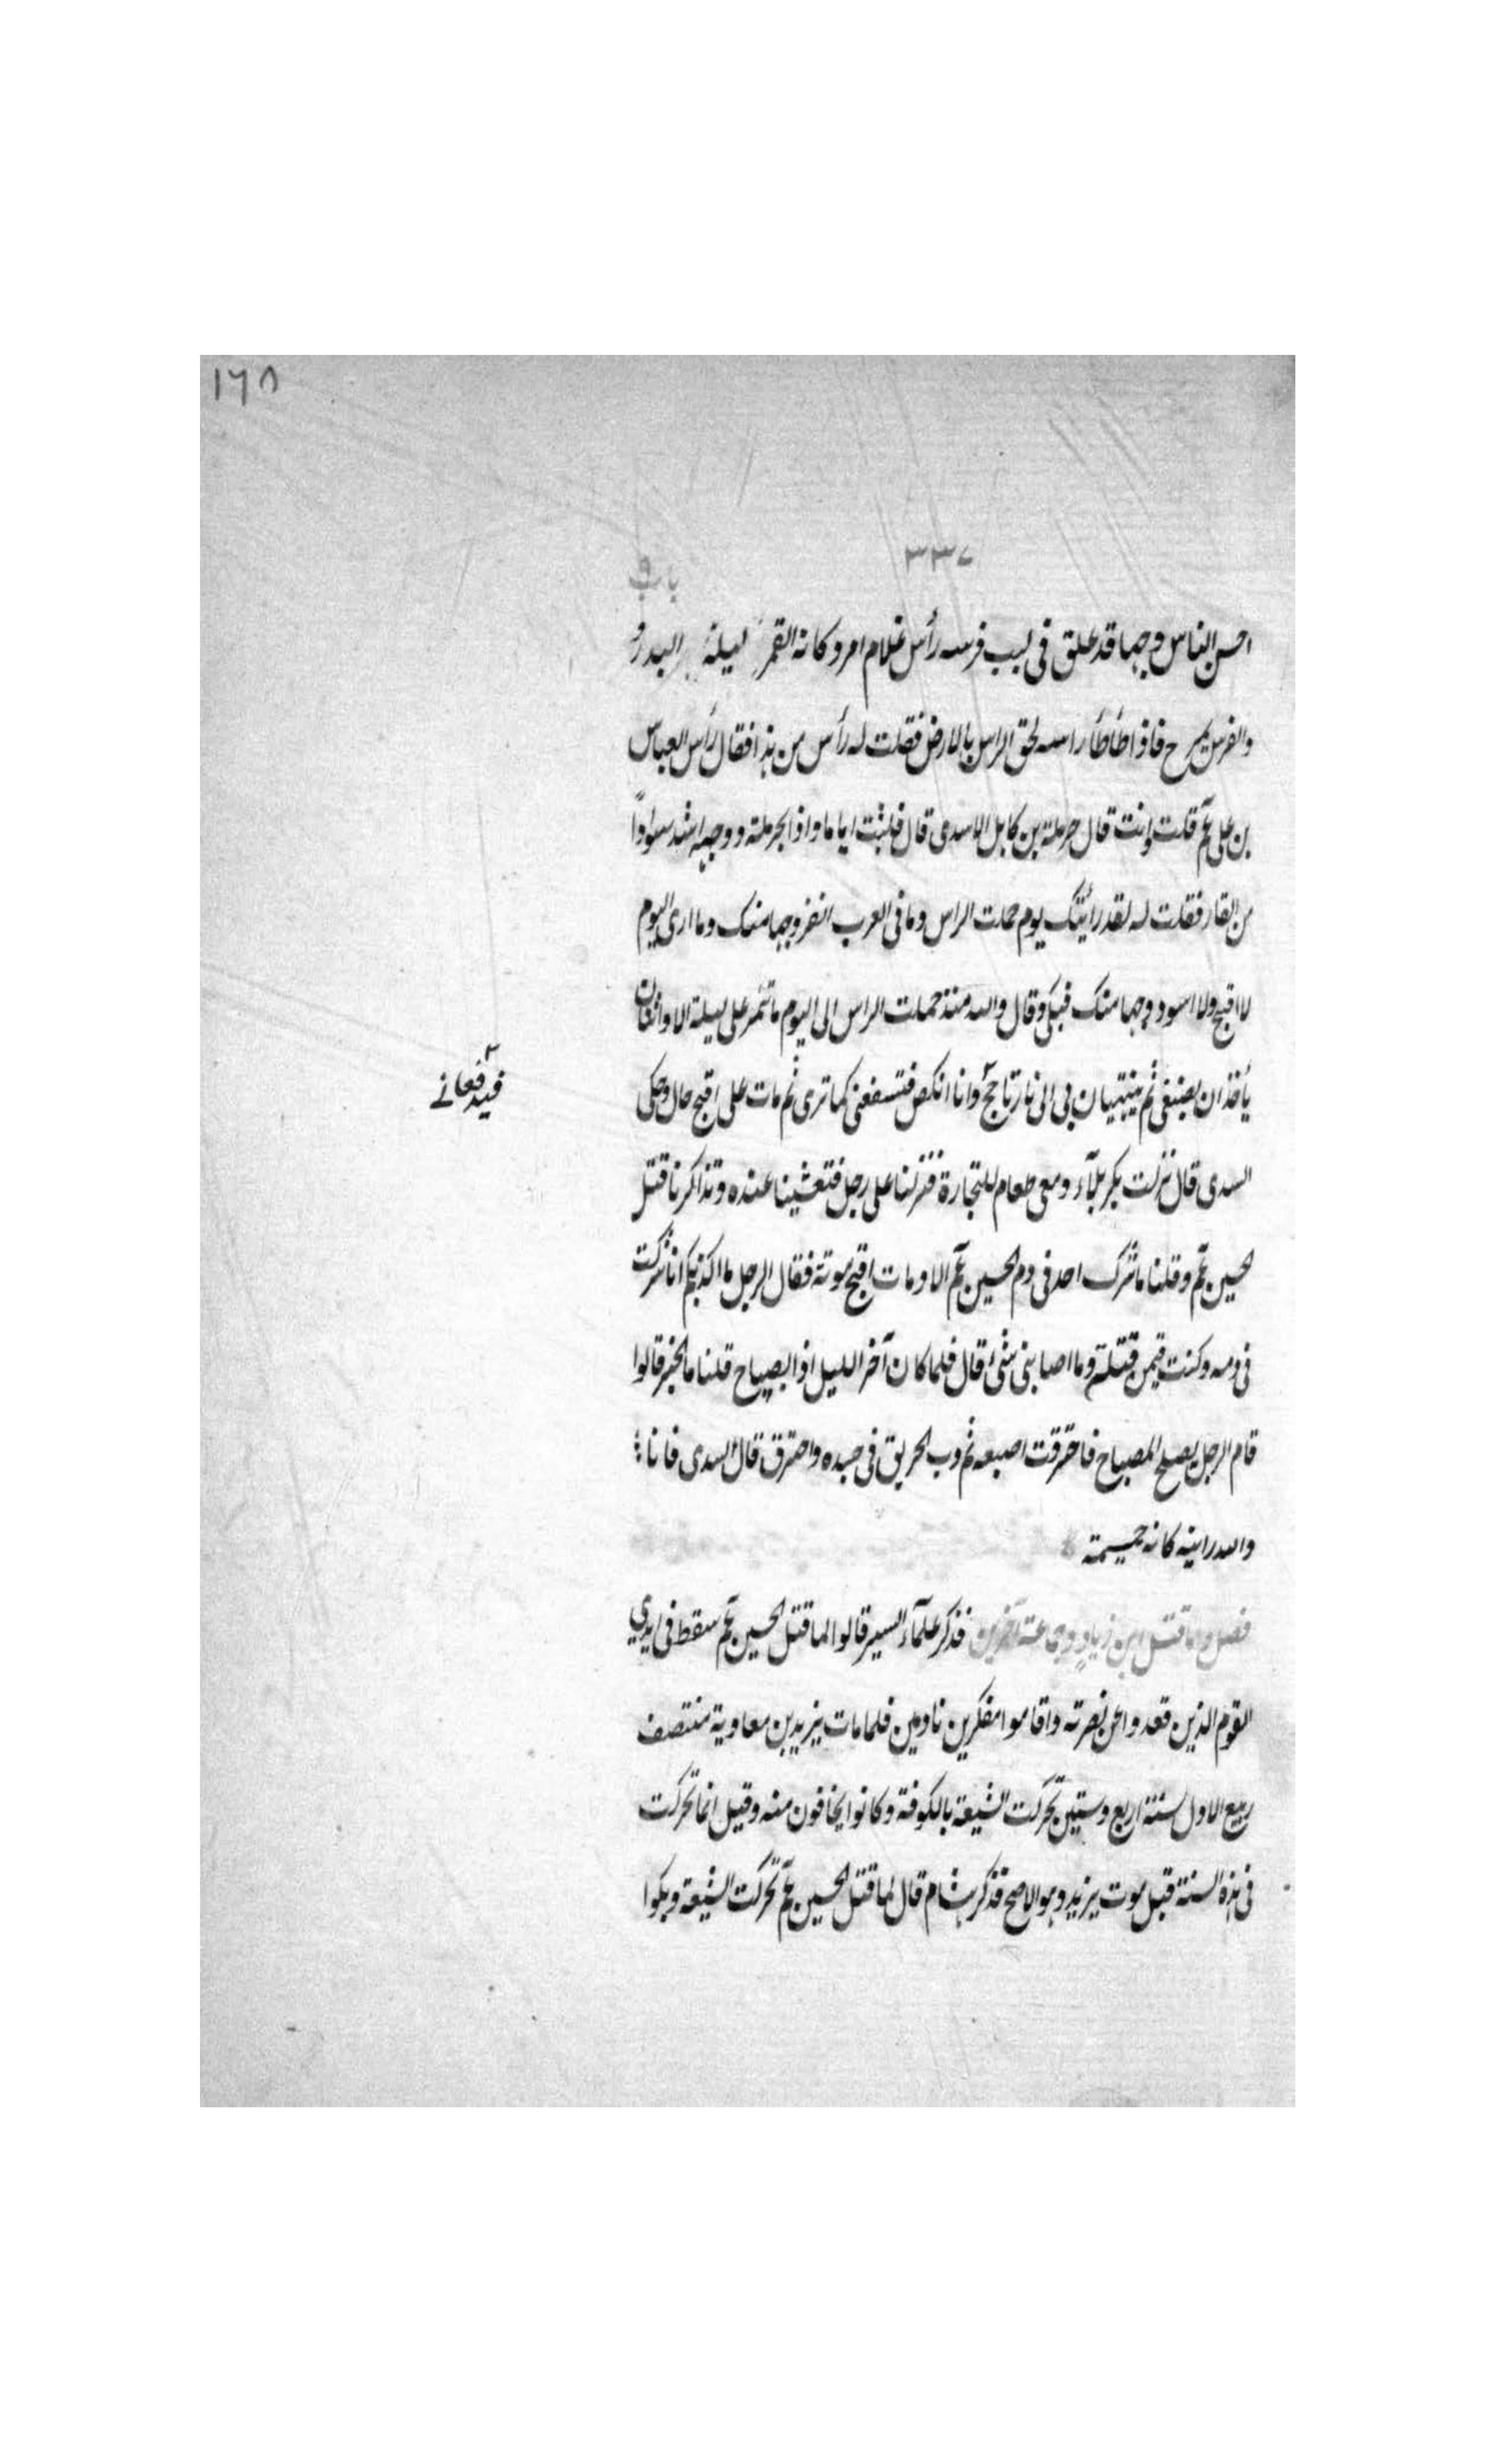 ١٦٨
٣٣٧
باب ٩
احسن الناس وجها قد علق فى لبب فرسه رأس غلام امرد كانه القمر ليلة البدر و
والفرس يمرح فاذا طأطأ راسه لحق الراس بالارض فقلت له رأس من هذا فقال رأس العباس
بن على عم قلت وانت قال حرملة بن كاهل الاسدى قال فلبثت اياما واذا بحرملة ووجهه اشد سوادا
من القار فقلت له لقد رأيتك يوم حملت الراس وما فى العرب انضر وجها منك وما ارى اليوم
لا اقبح ولا اسود وجها منك فبكى وقال والله منذ حملت الراس الى اليوم ما تمر على ليلة الا واثنان
يأخذان بضبعى ثم ينتهيان بى الى نار تاجج وانا انكص فتسفعنى كما ترى ثم مات على اقبح حال وحكى
فيدفعانے
السدى قال نزلت بكربلآء ومعى طعام للتجارة فنزلنا على رجل فتعشينا عنده وتذاكرنا قتل
الحسين عم وقلنا ما شرك احد فى دم الحسين عم الا ومات اقبح موتة فقال الرجل ما اكذبكم انا شركت
فى دمه وكنت فيمن قتله وما اصابنى شئ قال فلما كان آخر الليل اذا بصياح قلنا ما الخبر قالوا
قام الرجل يصلح المصباح فاحترقت اصبعه ثم دب الحريق فى جسده واحترق قال السدى فانا
والله رايته كانه حميمة
فصل ولما قتل ابن زياد وجماعة آخرين فذكر علمآء السير قالوا لما قتل الحسين عم سقط فى ايدي
القوم الذين قعدوا عن نصرته واقاموا مفكرين نادمين فلما مات يزيد بن معاوية منتصف
ربيع الاول سنة اربع وستين تحركت الشيعة بالكوفة وكانوا يخافون منه وقيل انما تحركت
فى هذه السنة قبل موت يزيد وهو الاصح فذكر هشام قال لما قتل الحسين عم تحركت الشيعة وبكوا